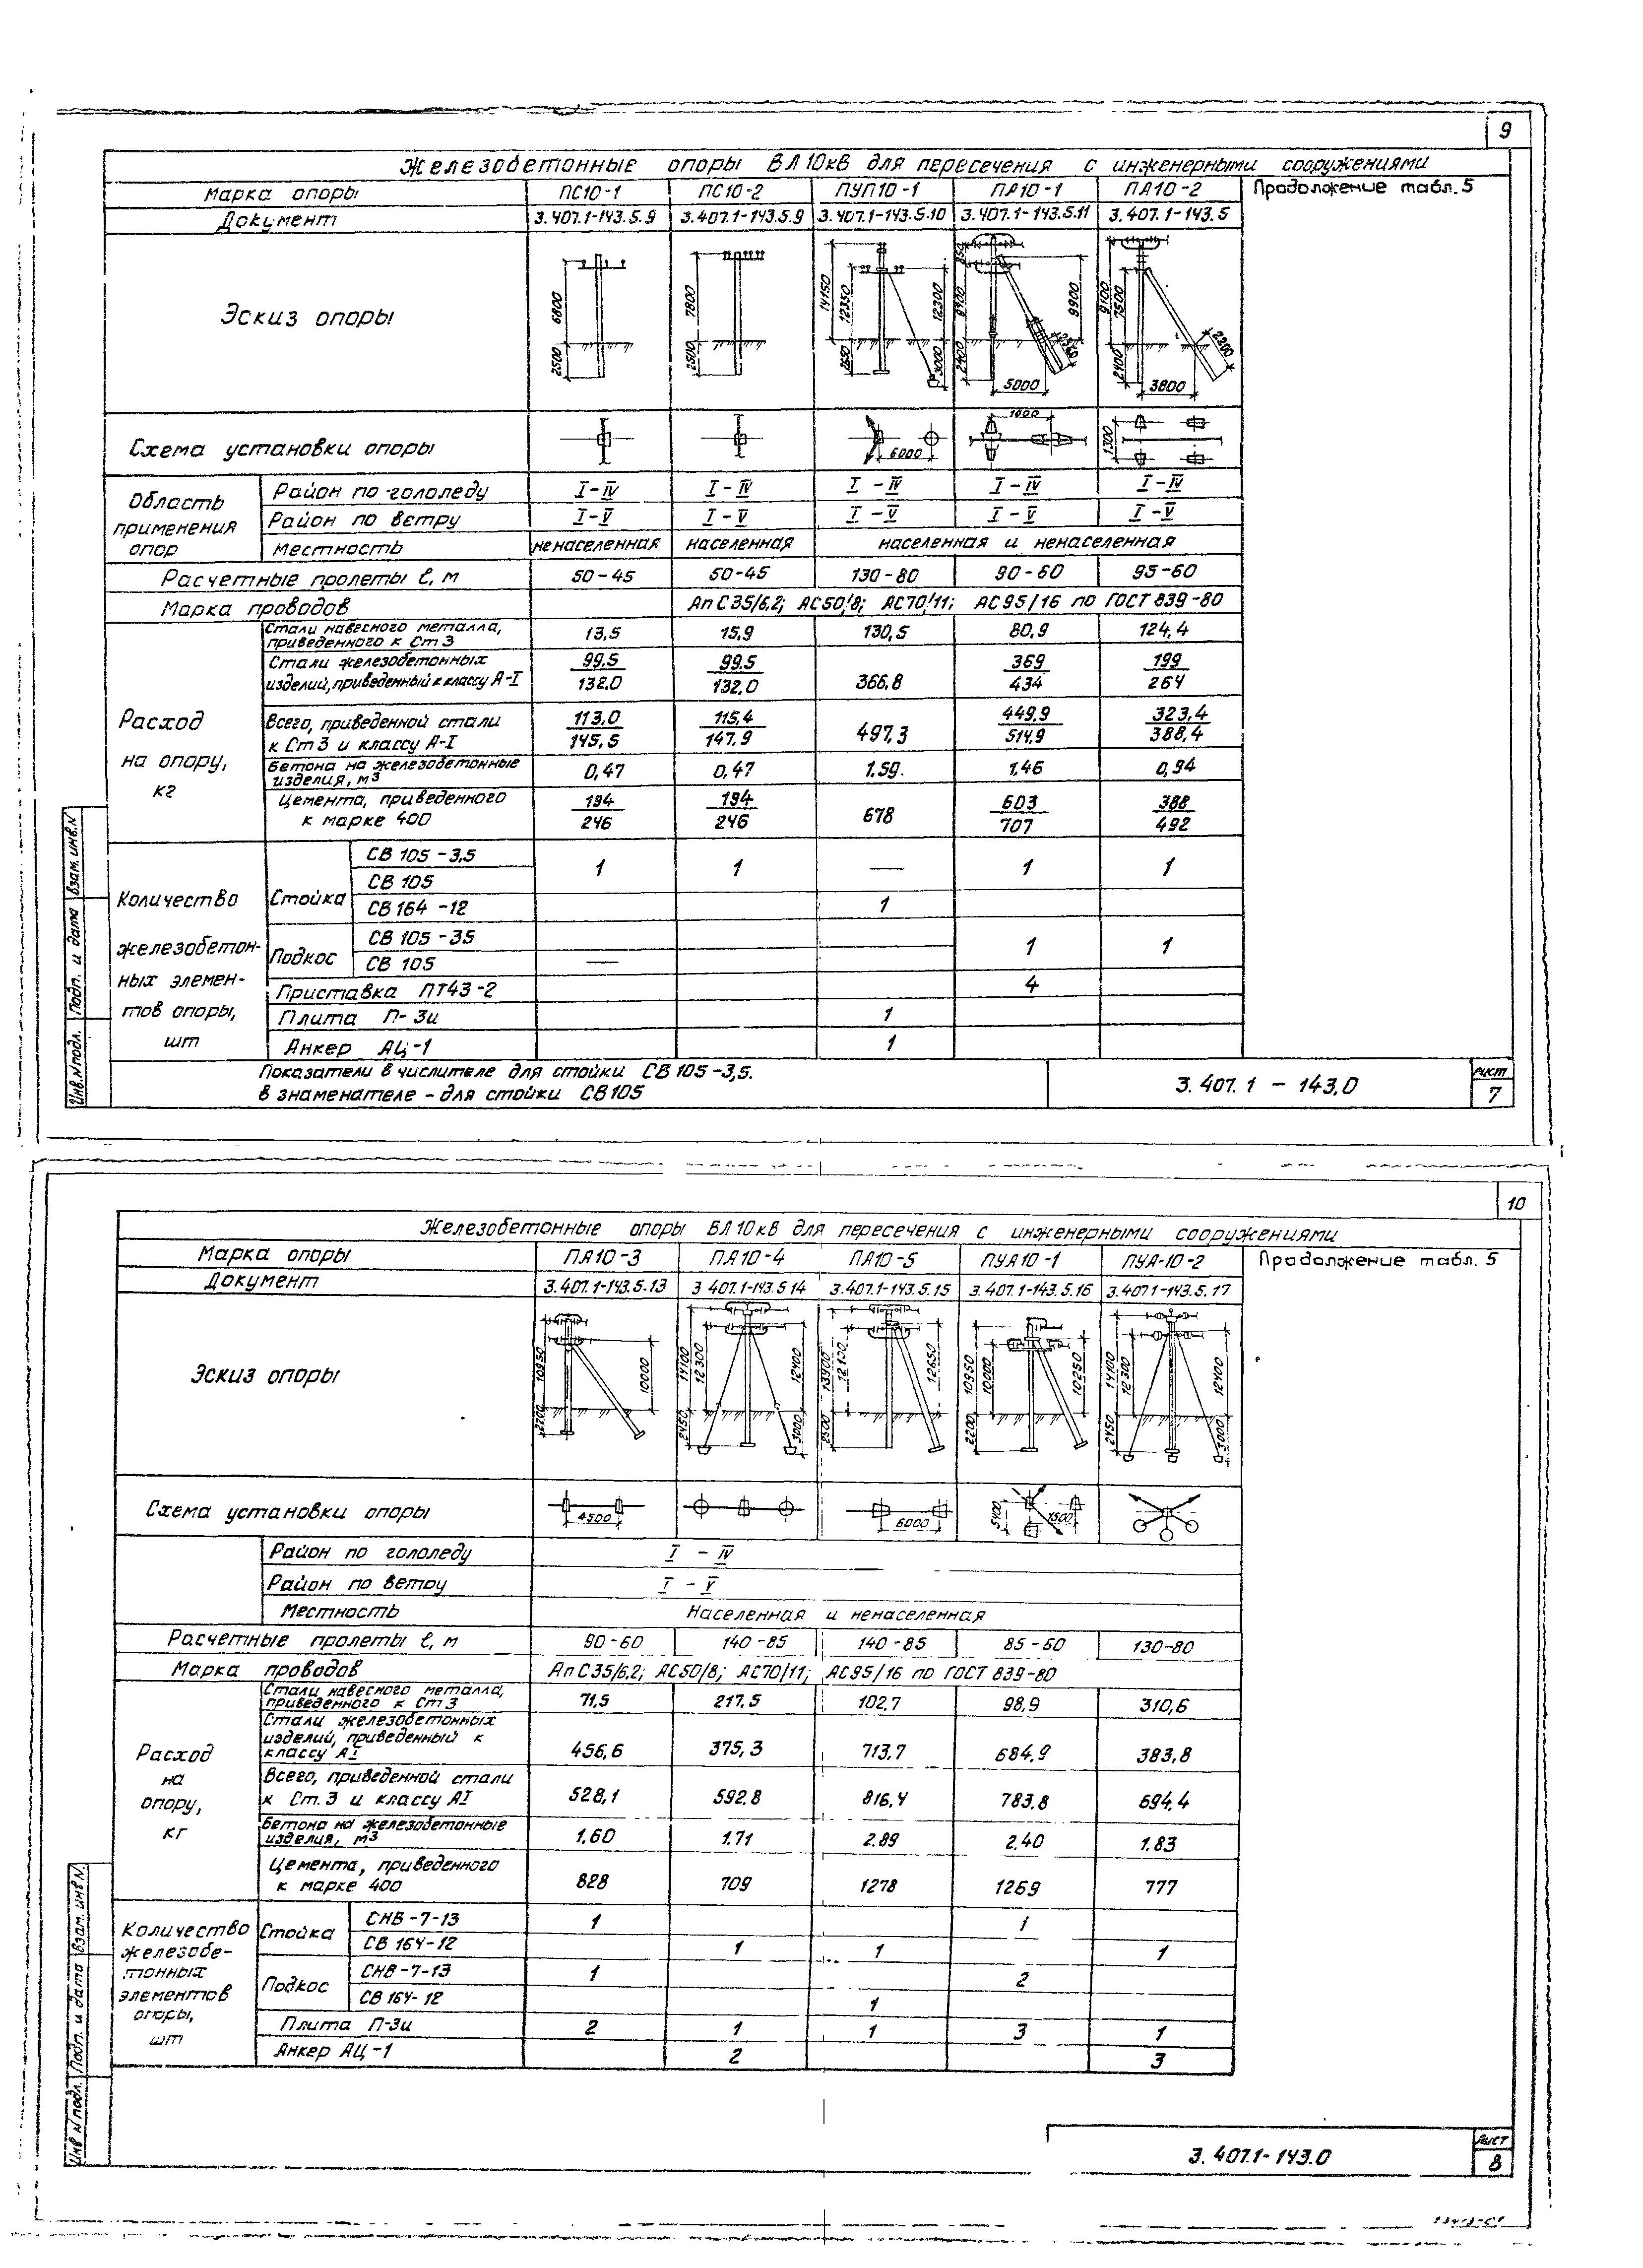 9
Железобетонные опоры ВЛ 10кВ для пересечения с инженерными сооружениями
Марка опоры ПС10-1 ПС10-2 ПУП10-1 ПА10-1 ПА10-2 Продолжение табл. 5
Документ 3.407.1-143.5.9 3.407.1-143.5.9 3.407.1-143.5.10 3.407.1-143.5.11 3.407.1-143.5
Эскиз опоры
6800 2500
7800 2500
14150 12350 2650 12300 3000
9400 2400 9900 5000
9100 7500 2400 2200 3800
Схема установки опоры
6000 1000 1300
Область применения опор
Район по гололеду I-IV I-IV I-IV I-IV I-IV
Район по ветру I-V I-V I-V I-V I-V
Местность ненаселенная населенная населенная и ненаселенная
Расчетные пролеты ℓ, м 50-45 50-45 130-80 90-60 95-60
Марка проводов АпС35/6,2; АС50/8; АС70/11; АС95/16 по ГОСТ 839-80
Расход на опору, кг
Стали навесного металла, приведенного к Ст 3 13,5 15,9 130,5 80,9 124,4
Стали железобетонных 99.5 99.5 369 199
изделий, приведенный к классу А-I 132.0 132,0 366,8 434 264
Всего, приведенной стали 113,0 115,4 449,9 323,4
к Ст 3 и классу А-I 145,5 147,9 497,3 514,9 388,4
Бетона на железобетонные изделия, м3 0,47 0,47 1.59. 1,46 0,94
Цемента, приведенного 194 194 603 388
к марке 400 246 246 678 707 492
Количество железобетонных элементов опоры, шт
Стойка
СВ 105-3,5 1 1 — 1 1
СВ 105
СВ 164-12 1
Подкос
СВ 105-35 1 1
СВ 105 —
Приставка ПТ43-2 4
Плита П-3и 1
Анкер АЦ-1 1
Показатели в числителе для стойки СВ 105-3,5.
в знаменателе - для стойки СВ105
3.407.1-143.0
Лист
7
Инв.N подл. Подп. и дата Взам. инв.N
10
Железобетонные опоры ВЛ 10кВ для пересечения с инженерными сооружениями
Марка опоры ПА10-3 ПА10-4 ПА10-5 ПУА10-1 ПУА-10-2 Продолжение табл. 5
Документ 3.407.1-143.5.13 3 407.1-143.5 14 3.407.1-143.5.15 3.407.1-143.5.16 3.407.1-143.5.17
Эскиз опоры
10950 2200 10000
14100 12300 2450 12400 3000
13900 12100 2500 12650
10950 10000 2200 10250
14100 12300 2450 12400 3000
Схема установки опоры
4500 6000 5400 7500
Район по гололеду I - IV
Район по ветру I - V
Местность Населенная и ненаселенная
Расчетные пролеты ℓ, м 90-60 140-85 140-85 85-60 130-80
Марка проводов АпС35/6,2; АС50/8; АС70/11; АС95/16 по ГОСТ 839-80
Расход на опору, кг
Стали навесного металла, приведенного к Ст 3 71,5 217.5 102,7 98,9 310,6
Стали железобетонных
изделий, приведенный к
классу АI 456,6 375,3 713,7 684,9 383,8
Всего, приведенной стали
к Ст. 3 и классу АI 528,1 592.8 816,4 783,8 694,4
Бетона на железобетонные изделия, м3 1.60 1.71 2.89 2,40 1.83
Цемента, приведенного
к марке 400 828 709 1278 1269 777
Количество железобетонных элементов опоры, шт
Стойка
СНВ-7-13 1 1
СВ 164-12 1 1 1
Подкос
СНВ-7-13 1 2
СВ 164-12 1
Плита П-3и 2 1 1 3 1
Анкер АЦ-1 2 3
3.407.1-143.0
Лист
8
Инв N подл. Подп. и дата Взам. инв N